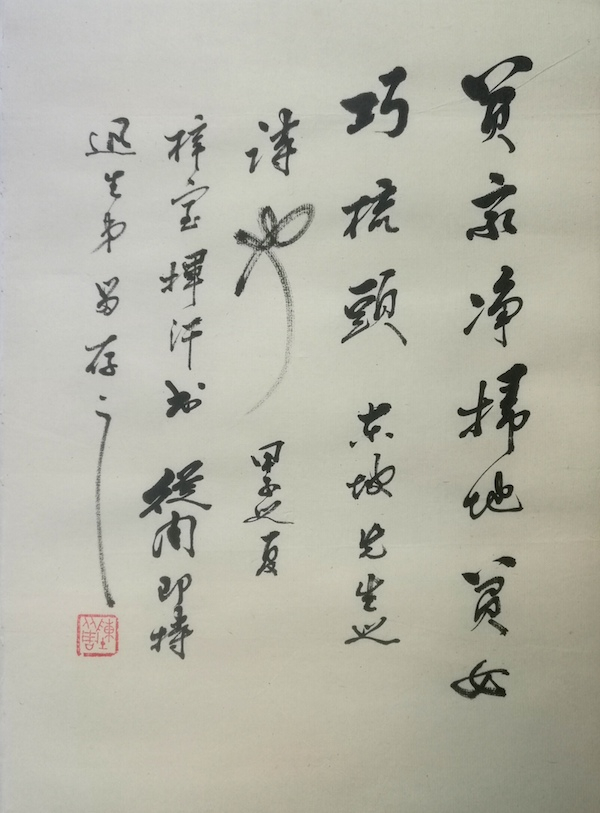 貧家净掃地貧女
巧梳頭 东坡先生之
诗也 甲子之夏
梓室揮汗书 從周即持
迅生弟留存之